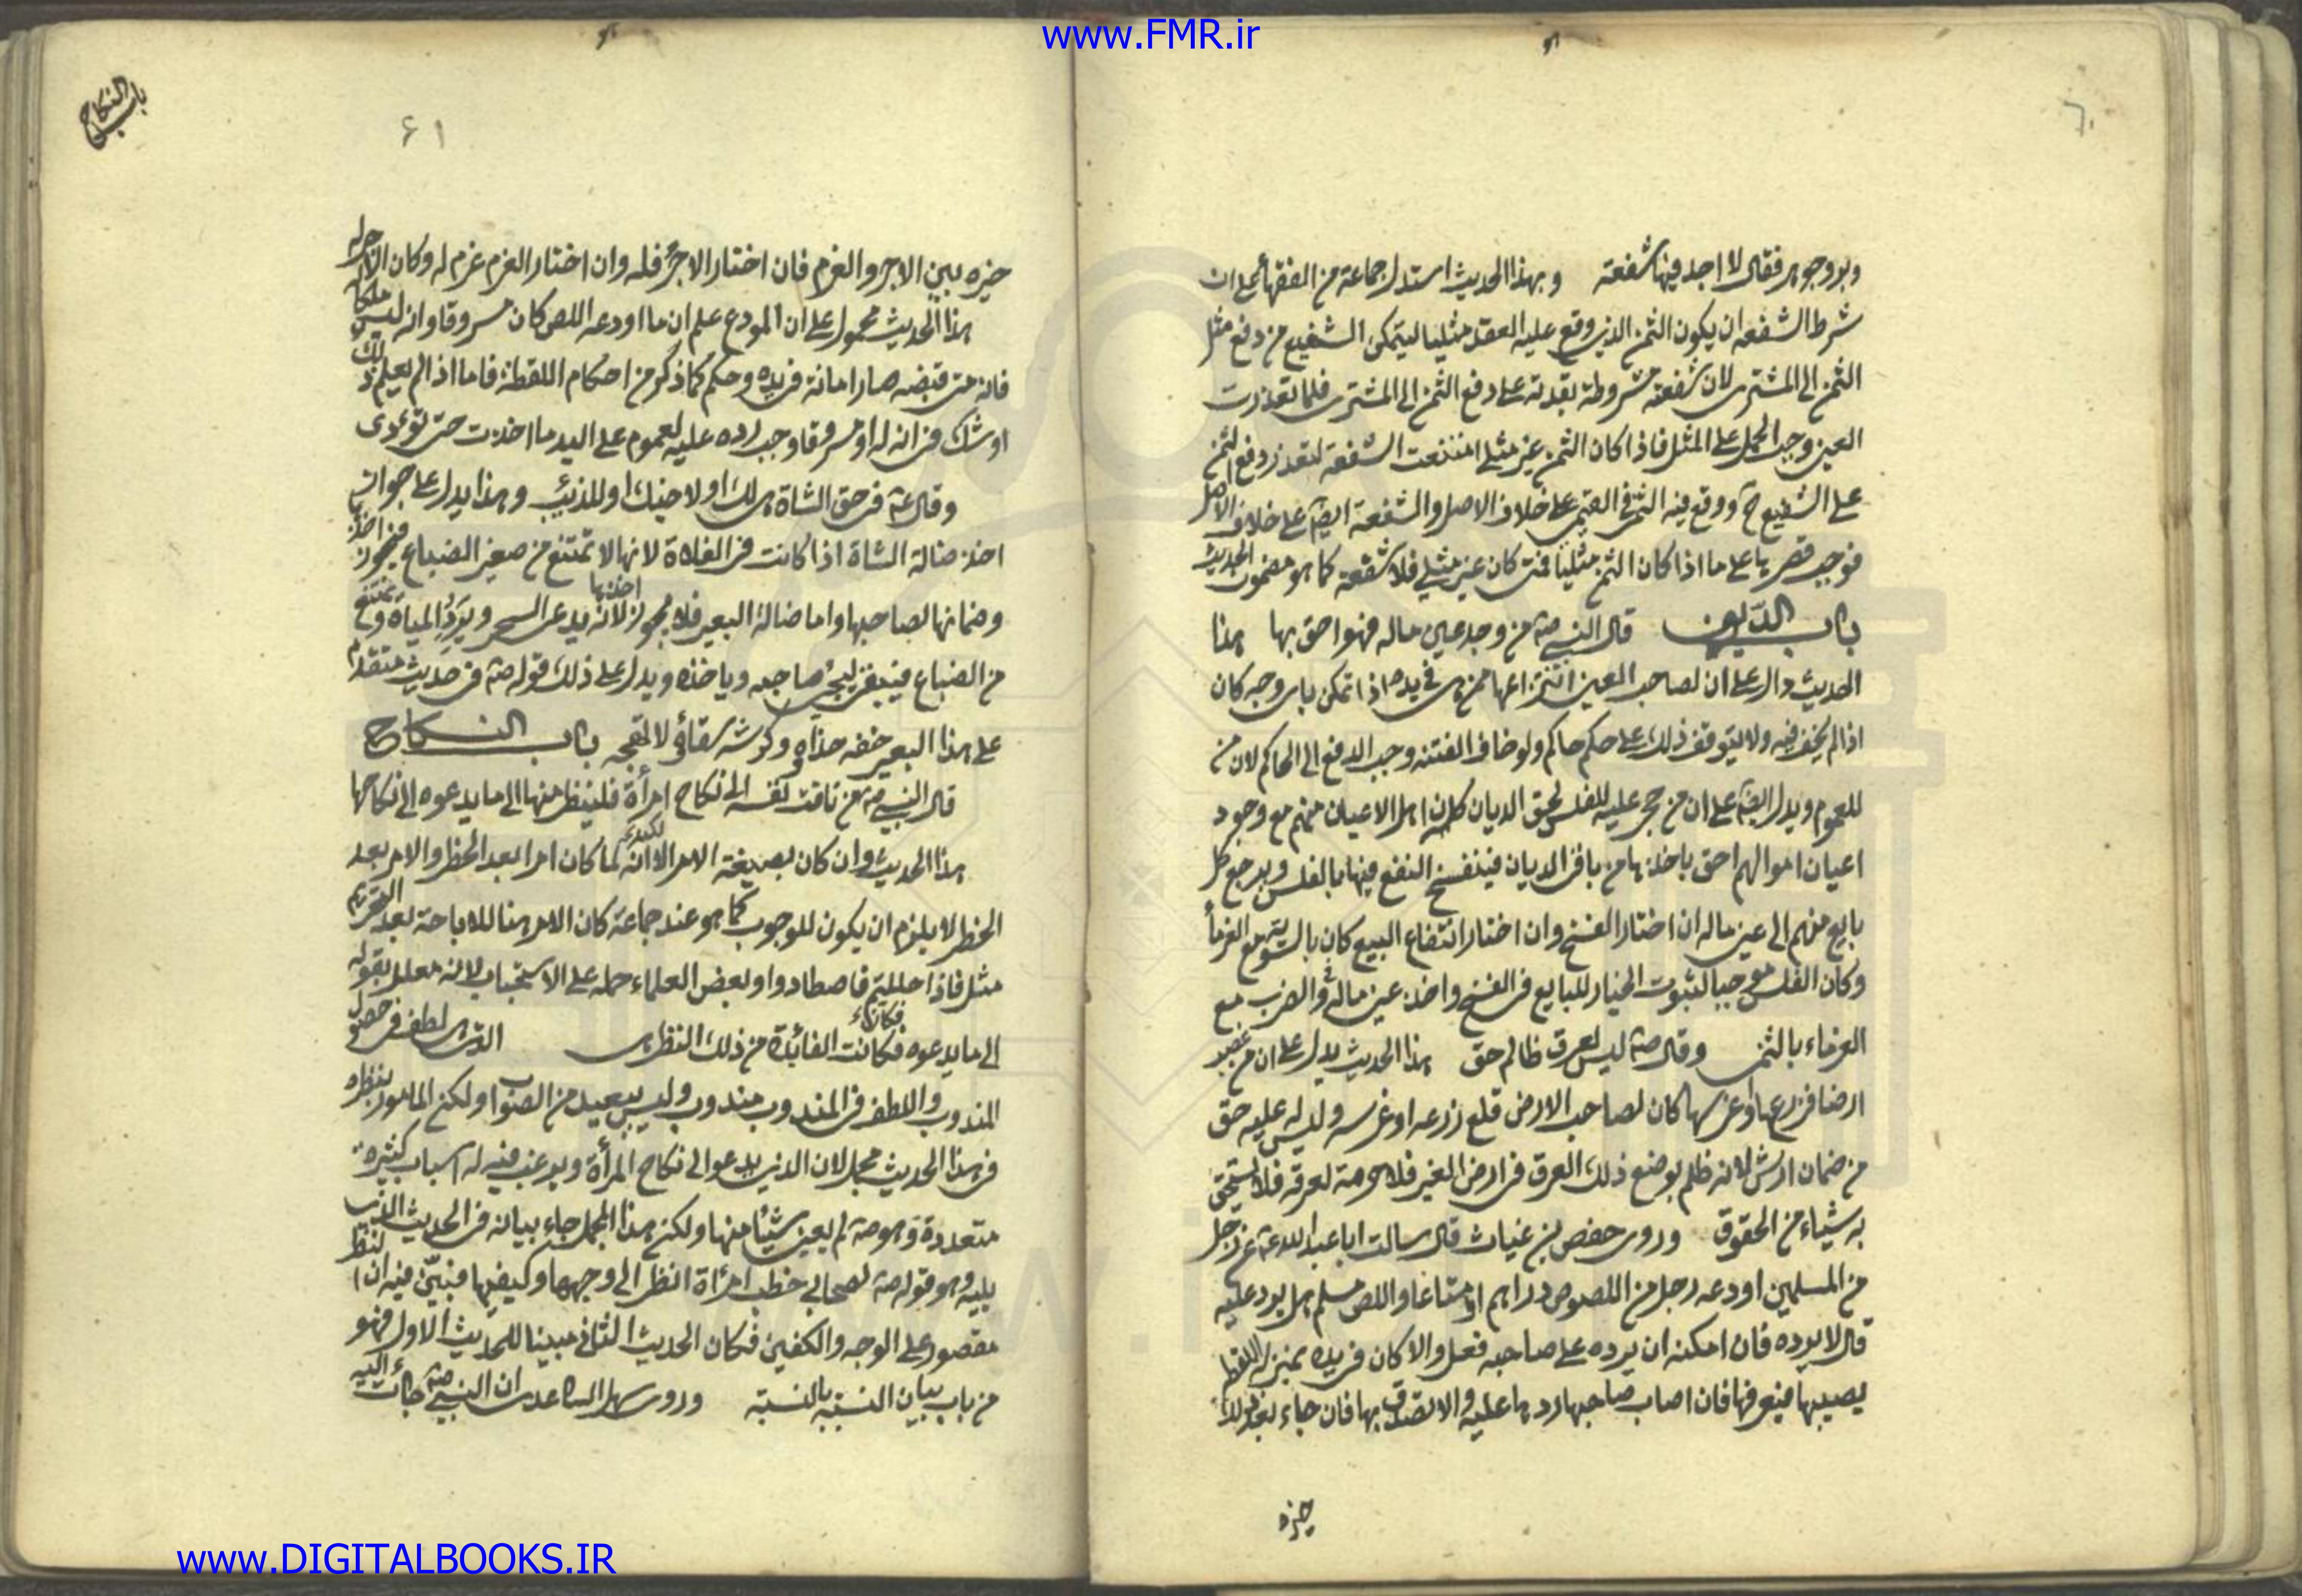 www.FMR.ir
٦٠
وبر وجوهر فقال لا اجد فيها شفعة وبهذا الحديث استدل جماعة من الفقهاء على ان
شرط الشفعه ان يكون الثمن الذى وقع عليه العقد مثليا ليتمكن الشفيع من دفع مثل
الثمن الى المشترى لان شفعته مشروطة بقدرته على دفع الثمن الى المشترى فلما تعذرت
العين وجب الحمل على المثل فاذا كان الثمن غير مثلى امتنعت الشفعة لتعذر دفع الثمن
على الشفيع ح ووقع فيه الثمن فى القيمى على خلاف الاصل والشفعة ايضا على خلاف الاصل
فوجب قصرها على ما اذا كان الثمن مثليا فمتى كان غير مثلى فلا شفعة كما هو مضمون الحديث
باب الديون قال النبى صه من وجد عين ماله فهو احق بها هذا
الحديث دال على ان لصاحب العين انتزاعها ممن هى فى يده اذا تمكن باى وجه كان
اذا لم يخف فتنه ولا يتوقف ذلك على حكم حاكم ولو خاف الفتنه وجب الدفع الى الحاكم لان من
للعموم ويدل ايضا على ان من حجر عليه للفلس لحق الديان كان اهل الاعيان منهم مع وجود
اعيان اموالهم احق باخذها من باقى الديان فينفسخ البيع فيها بالفلس ويرجع كل
بايع منهم الى عين ماله ان اختار الفسخ وان اختار انتفاع البيع كان بالسوية مع الغرماء
وكان الفلس موجبا لثبوت الخيار للبايع فى الفسخ واخذ عين ماله والضرب مع
الغرماء بالثمن وقال صه ليس لعرق ظالم حق هذا الحديث يدل على ان من غصب
ارضا فزرعها او غرسها كان لصاحب الارض قلع زرعه او غرسه وليس له عليه حق
من ضمان ارش لانه ظلم بوضع ذلك العرق فى ارض الغير فلا حرمة لعرقه فلا يستحق
به شيئاء من الحقوق وروى حفص بن غياث قال سالت ابا عبد الله عه عن رجل
من المسلمين اودعه رجل من اللصوص دراهم او متاعا واللص مسلم هل يرد عليه
قال لا يرده فان امكنه ان يرده على صاحبه فعل والا كان فى يده بمنزلة اللقطة
يصيبها فيعرفها فان اصاب صاحبها ردها عليه والا تصدق بها فان جاء بعد ذلك
خيره
باب النكاح
۶۱
خيره بين الاجر والغرم فان اختار الاجر فله وان اختار الغرم غرم له وكان الاجر له
هذا الحديث محمول على ان المودع علم ان ما اودعه اللص كان مسروقا وانه ليس ملكا له
فانه متى قبضه صار امانة فى يده وحكم كما ذكر من احكام اللقطة فاما اذا لم يعلم ذلك
او شك فى انه له او مسروقا وجب رده عليه لعموم على اليد ما اخذت حتى تؤدى
وقال عه فى حق الشاة هى لك او لاخيك او للذئب وهذا يدل على جواز
اخذ ضالة الشاة اذا كانت فى الفلاة لانها لا تمتنع من صغير الضباع فيجوز اخذها
وضمانها لصاحبها واما ضالة البعير فلا يجوز اخذها لانه يرعى الشجر ويرد المياة ويمتنع
من الضباع فيبقى ليجئ صاحبه وياخذه ويدل على ذلك قوله صه فى حديث متقدم
على هذا البعير خفه حذاه وكرشه سقاؤه لا تهجه باب النكاح
قال النبى صه من تاقت نفسه الى نكاح امرأة فلينظر منها الى ما يدعوه الى نكاحها
هذا الحديث وان كان بصيغة الامر الا انه لما كان امرا بعد الحظر والامر بعد
الحظر لا يلزم ان يكون للوجوب كما هو عند جماعة كان الامر هنا للاباحة بعد التحريم
مثل فاذا حللتم فاصطادوا وبعض العلماء حمله على الاستحباب لانه معلل بقوله
الى ما يدعوه فكانت الفائدة من ذلك النظر هى الذى لطف فى حصول
المندوب واللطف فى المندوب مندوب وليس ببعيد من الصواب ولكن المامور بنظره
فى هذا الحديث مجمل لان الذى يدعو الى نكاح المرأة ويرغب فيه له اسباب كثيرة
متعددة وهو صه لم يعين شيئا منها ولكن هذا المجمل جاء بيانه فى الحديث الذى
يليه وهو قوله صه لصحابى خطب امرأة انظر الى وجهها وكفيها فبين فيه ان النظر
مقصور على الوجه والكفين فكان الحديث الثانى مبينا للحديث الاول فهو
من باب بيان السنة بالسنة وروى سهل الساعدى ان النبى صه جائت اليه
www.DIGITALBOOKS.IR